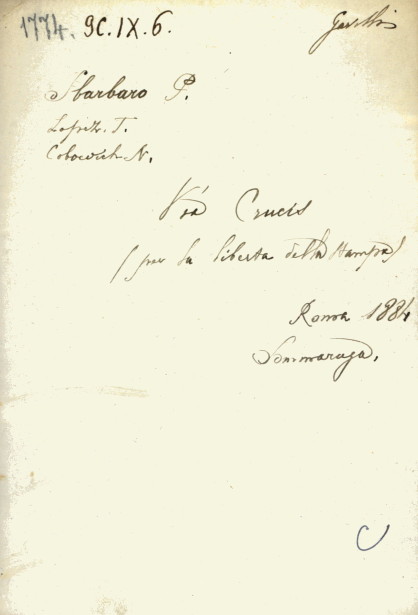 1774. 9C.IX.6.
Sbarbaro P.
Lopez. T.
Cobocvich N.
Via Crucis
(per la libertà della stampa)
Roma 1884
Sommaruga.
C